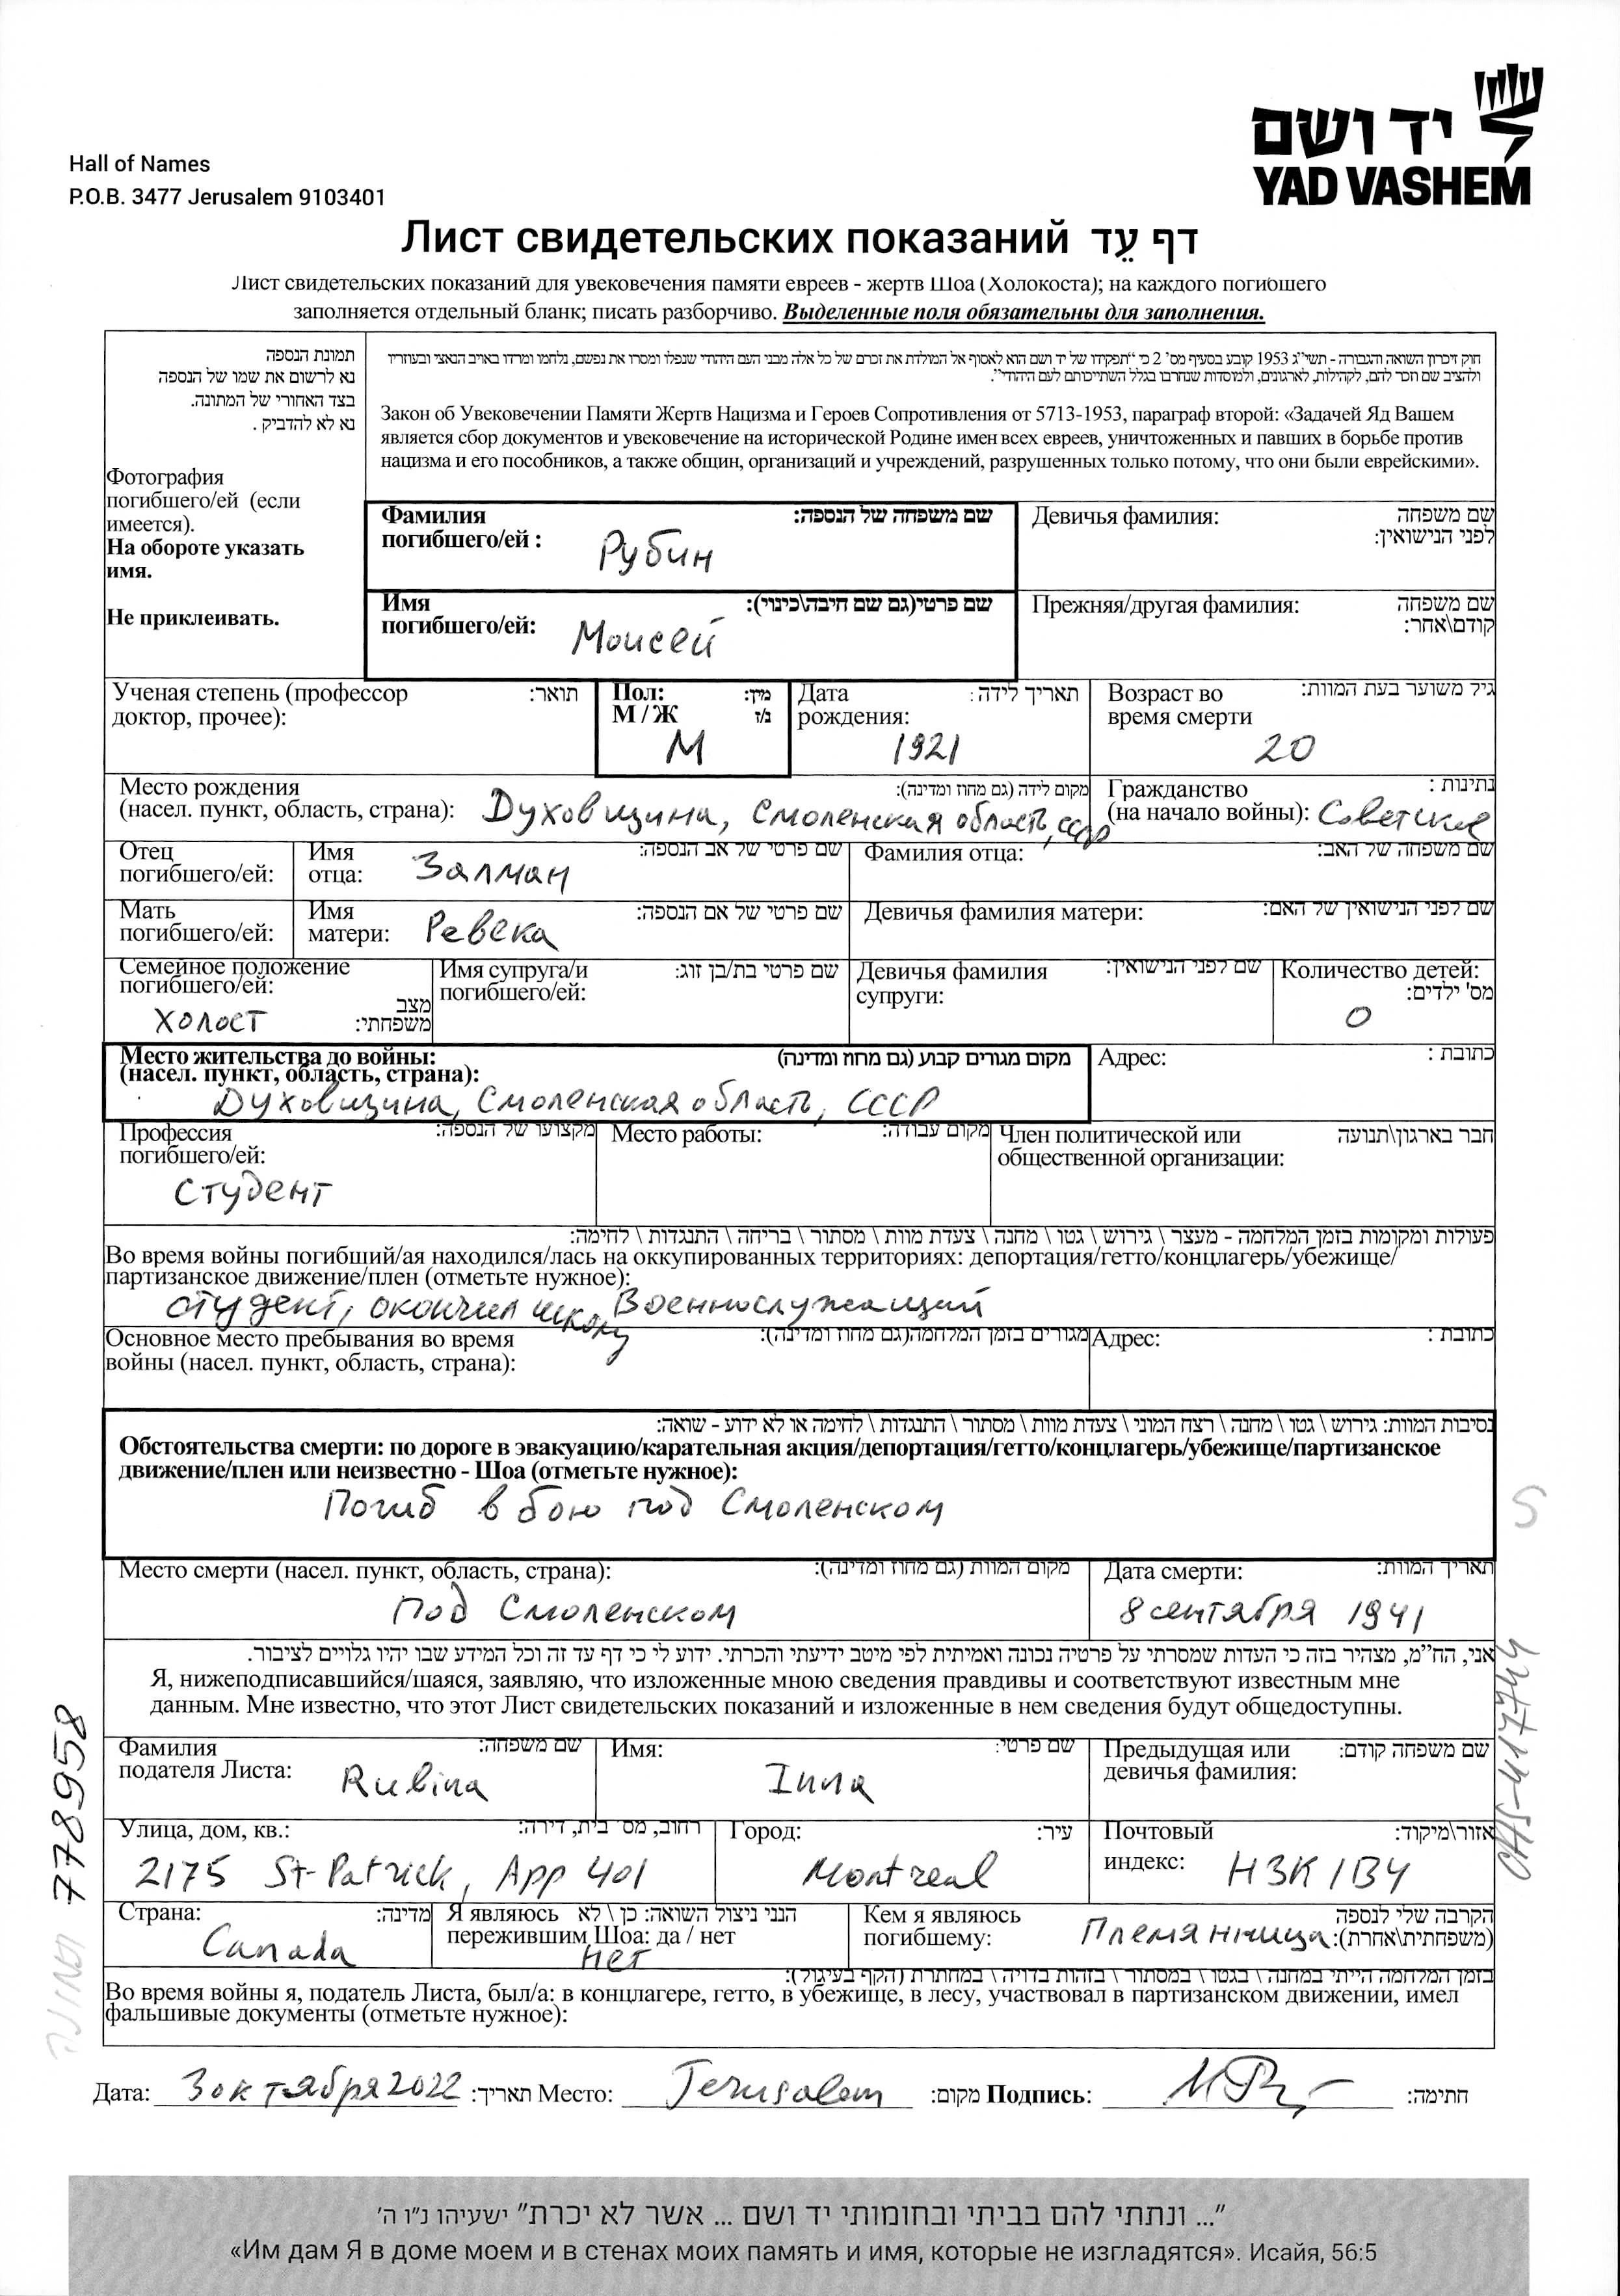 יד ושם
YAD VASHEM
Hall of Names
P.O.B. 3477 Jerusalem 9103401
Лист свидетельских показаний דף עֵד
Лист свидетельских показаний для увековечения памяти евреев - жертв Шоа (Холокоста); на каждого погибшего
заполняется отдельный бланк; писать разборчиво. Выделенные поля обязательны для заполнения.
תמונת הנספה
נא לרשום את שמו של הנספה
בצד האחורי של המתונה.
נא לא להדביק .
Фотография
погибшего/ей (если
имеется).
На обороте указать
имя.
Не приклеивать.
חוק זיכרון השואה והגבורה - תשי"ג 1953 קובע בסעיף מס' 2 כי "תפקידו של יד ושם הוא לאסוף אל המולדת את זכרם של כל אלה מבני העם היהודי שנפלו ומסרו את נפשם, נלחמו ומרדו באויב הנאצי ובעוזריו
ולהציב שם וזכר להם, לקהילות, לארגונים, ולמוסדות שנחרבו בגלל השתייכותם לעם היהודי".
Закон об Увековечении Памяти Жертв Нацизма и Героев Сопротивления от 5713-1953, параграф второй: «Задачей Яд Вашем
является сбор документов и увековечение на исторической Родине имен всех евреев, уничтоженных и павших в борьбе против
нацизма и его пособников, а также общин, организаций и учреждений, разрушенных только потому, что они были еврейскими».
Фамилия שם משפחה של הנספה:
погибшего/ей : Рубин
Девичья фамилия: שם משפחה
לפני הנישואין:
Имя שם פרטי(גם שם חיבה\כינוי):
погибшего/ей: Моисей
Прежняя/другая фамилия: שם משפחה
קודם\אחר:
Ученая степень (профессор תואר:
доктор, прочее):
Пол: מין:
М / Ж ז/נ
М
Дата תאריך לידה :
рождения:
1921
Возраст во גיל משוער בעת המוות:
время смерти
20
Место рождения מקום לידה (גם מחוז ומדינה):
(насел. пункт, область, страна): Духовщина, Смоленская область, ссср
Гражданство נתינות :
(на начало войны): Советское
Отец
погибшего/ей:
Имя שם פרטי של אב הנספה:
отца: Залман
Фамилия отца: שם משפחה של האב:
Мать
погибшего/ей:
Имя שם פרטי של אם הנספה:
матери: Ревека
Девичья фамилия матери: שם לפני הנישואין של האם:
Семейное положение
погибшего/ей:
מצב
משפחתי:
Холост
Имя супруга/и שם פרטי בת/בן זוג:
погибшего/ей:
Девичья фамилия שם לפני הנישואין:
супруги:
Количество детей:
מס' ילדים:
0
Место жительства до войны: מקום מגורים קבוע (גם מחוז ומדינה)
(насел. пункт, область, страна):
Духовщина, Смоленская область, СССР
Адрес: כתובת :
Профессия מקצועו של הנספה:
погибшего/ей:
Студент
Место работы: מקום עבודה:
Член политической или חבר בארגון\תנועה
общественной организации:
פעולות ומקומות בזמן המלחמה - מעצר \ גירוש \ גטו \ מחנה \ צעדת מוות \ מסתור \ בריחה \ התנגדות \ לחימה:
Во время войны погибший/ая находился/лась на оккупированных территориях: депортация/гетто/концлагерь/убежище/
партизанское движение/плен (отметьте нужное):
студент, окончил школу Военнослужащий
Основное место пребывания во время מגורים בזמן המלחמה(גם מחוז ומדינה):
войны (насел. пункт, область, страна):
Адрес: כתובת :
נסיבות המוות: גירוש \ גטו \ מחנה \ רצח המוני \ צעדת מוות \ מסתור \ התנגדות \ לחימה או לא ידוע - שואה:
Обстоятельства смерти: по дороге в эвакуацию/карательная акция/депортация/гетто/концлагерь/убежище/партизанское
движение/плен или неизвестно - Шоа (отметьте нужное):
Погиб в бою под Смоленском
S
Место смерти (насел. пункт, область, страна): מקום המוות (גם מחוז ומדינה):
Под Смоленском
Дата смерти: תאריך המוות:
8 сентября 1941
אני, הח"מ, מצהיר בזה כי העדות שמסרתי על פרטיה נכונה ואמיתית לפי מיטב ידיעתי והכרתי. ידוע לי כי דף עד זה וכל המידע שבו יהיו גלויים לציבור.
Я, нижеподписавшийся/шаяся, заявляю, что изложенные мною сведения правдивы и соответствуют известным мне
данным. Мне известно, что этот Лист свидетельских показаний и изложенные в нем сведения будут общедоступны.
Фамилия שם משפחה:
подателя Листа: Rubina
Имя: שם פרטי:
Inna
Предыдущая или שם משפחה קודם:
девичья фамилия:
Улица, дом, кв.: רחוב, מס' בית, דירה:
2175 St-Patrick, App 401
Город: עיר:
Montreal
Почтовый אזור\מיקוד:
индекс: H3K 1B4
Страна: מדינה:
Canada
Я являюсь הנני ניצול השואה: כן \ לא
пережившим Шоа: да / нет
нет
Кем я являюсь הקרבה שלי לנספה
погибшему: Племянница (משפחתית\אחרת):
בזמן המלחמה הייתי במחנה \ בגטו \ במסתור \ בזהות בדויה \ במחתרת (הקף בעיגול):
Во время войны я, податель Листа, был/а: в концлагере, гетто, в убежище, в лесу, участвовал в партизанском движении, имел
фальшивые документы (отметьте нужное):
Дата: 3 октября 2022 תאריך: Место: Jerusalem מקום: Подпись: חתימה:
778958
תמונה
"... ונתתי להם בביתי ובחומותי יד ושם ... אשר לא יכרת" ישעיהו נ"ו ה'
«Им дам Я в доме моем и в стенах моих память и имя, которые не изгладятся». Исайя, 56:5